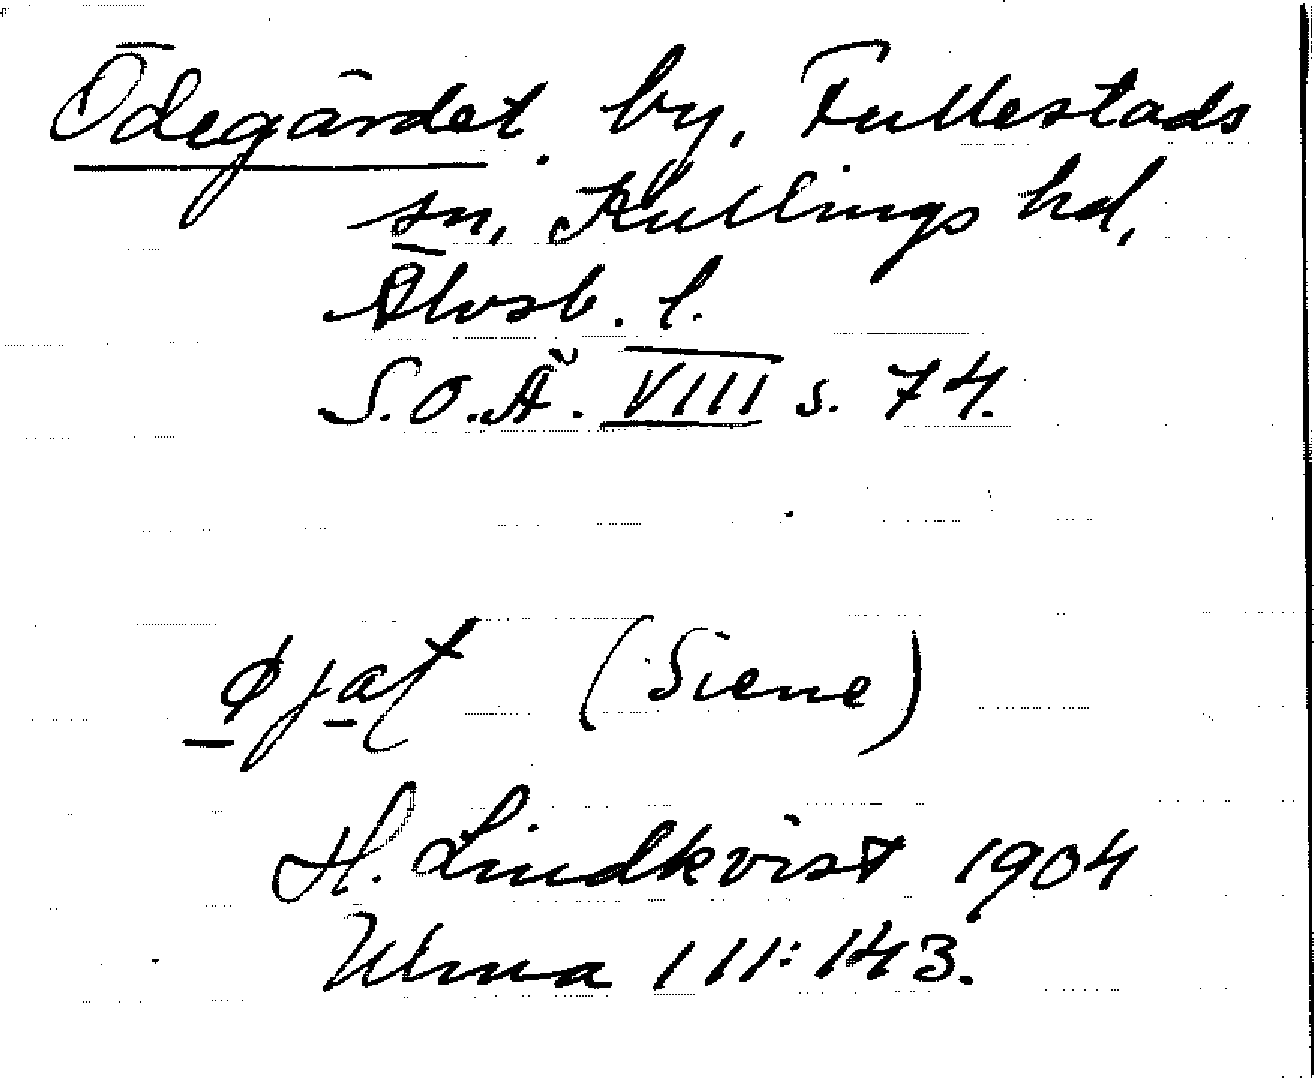 Ödegärdet. by, Fullestads
sn, Kullings hd,
Älvsb. l.
S.O.Ä. VIII s. 74.
(Siene)
H. Lindkvist 1904
Ulma 111:143.